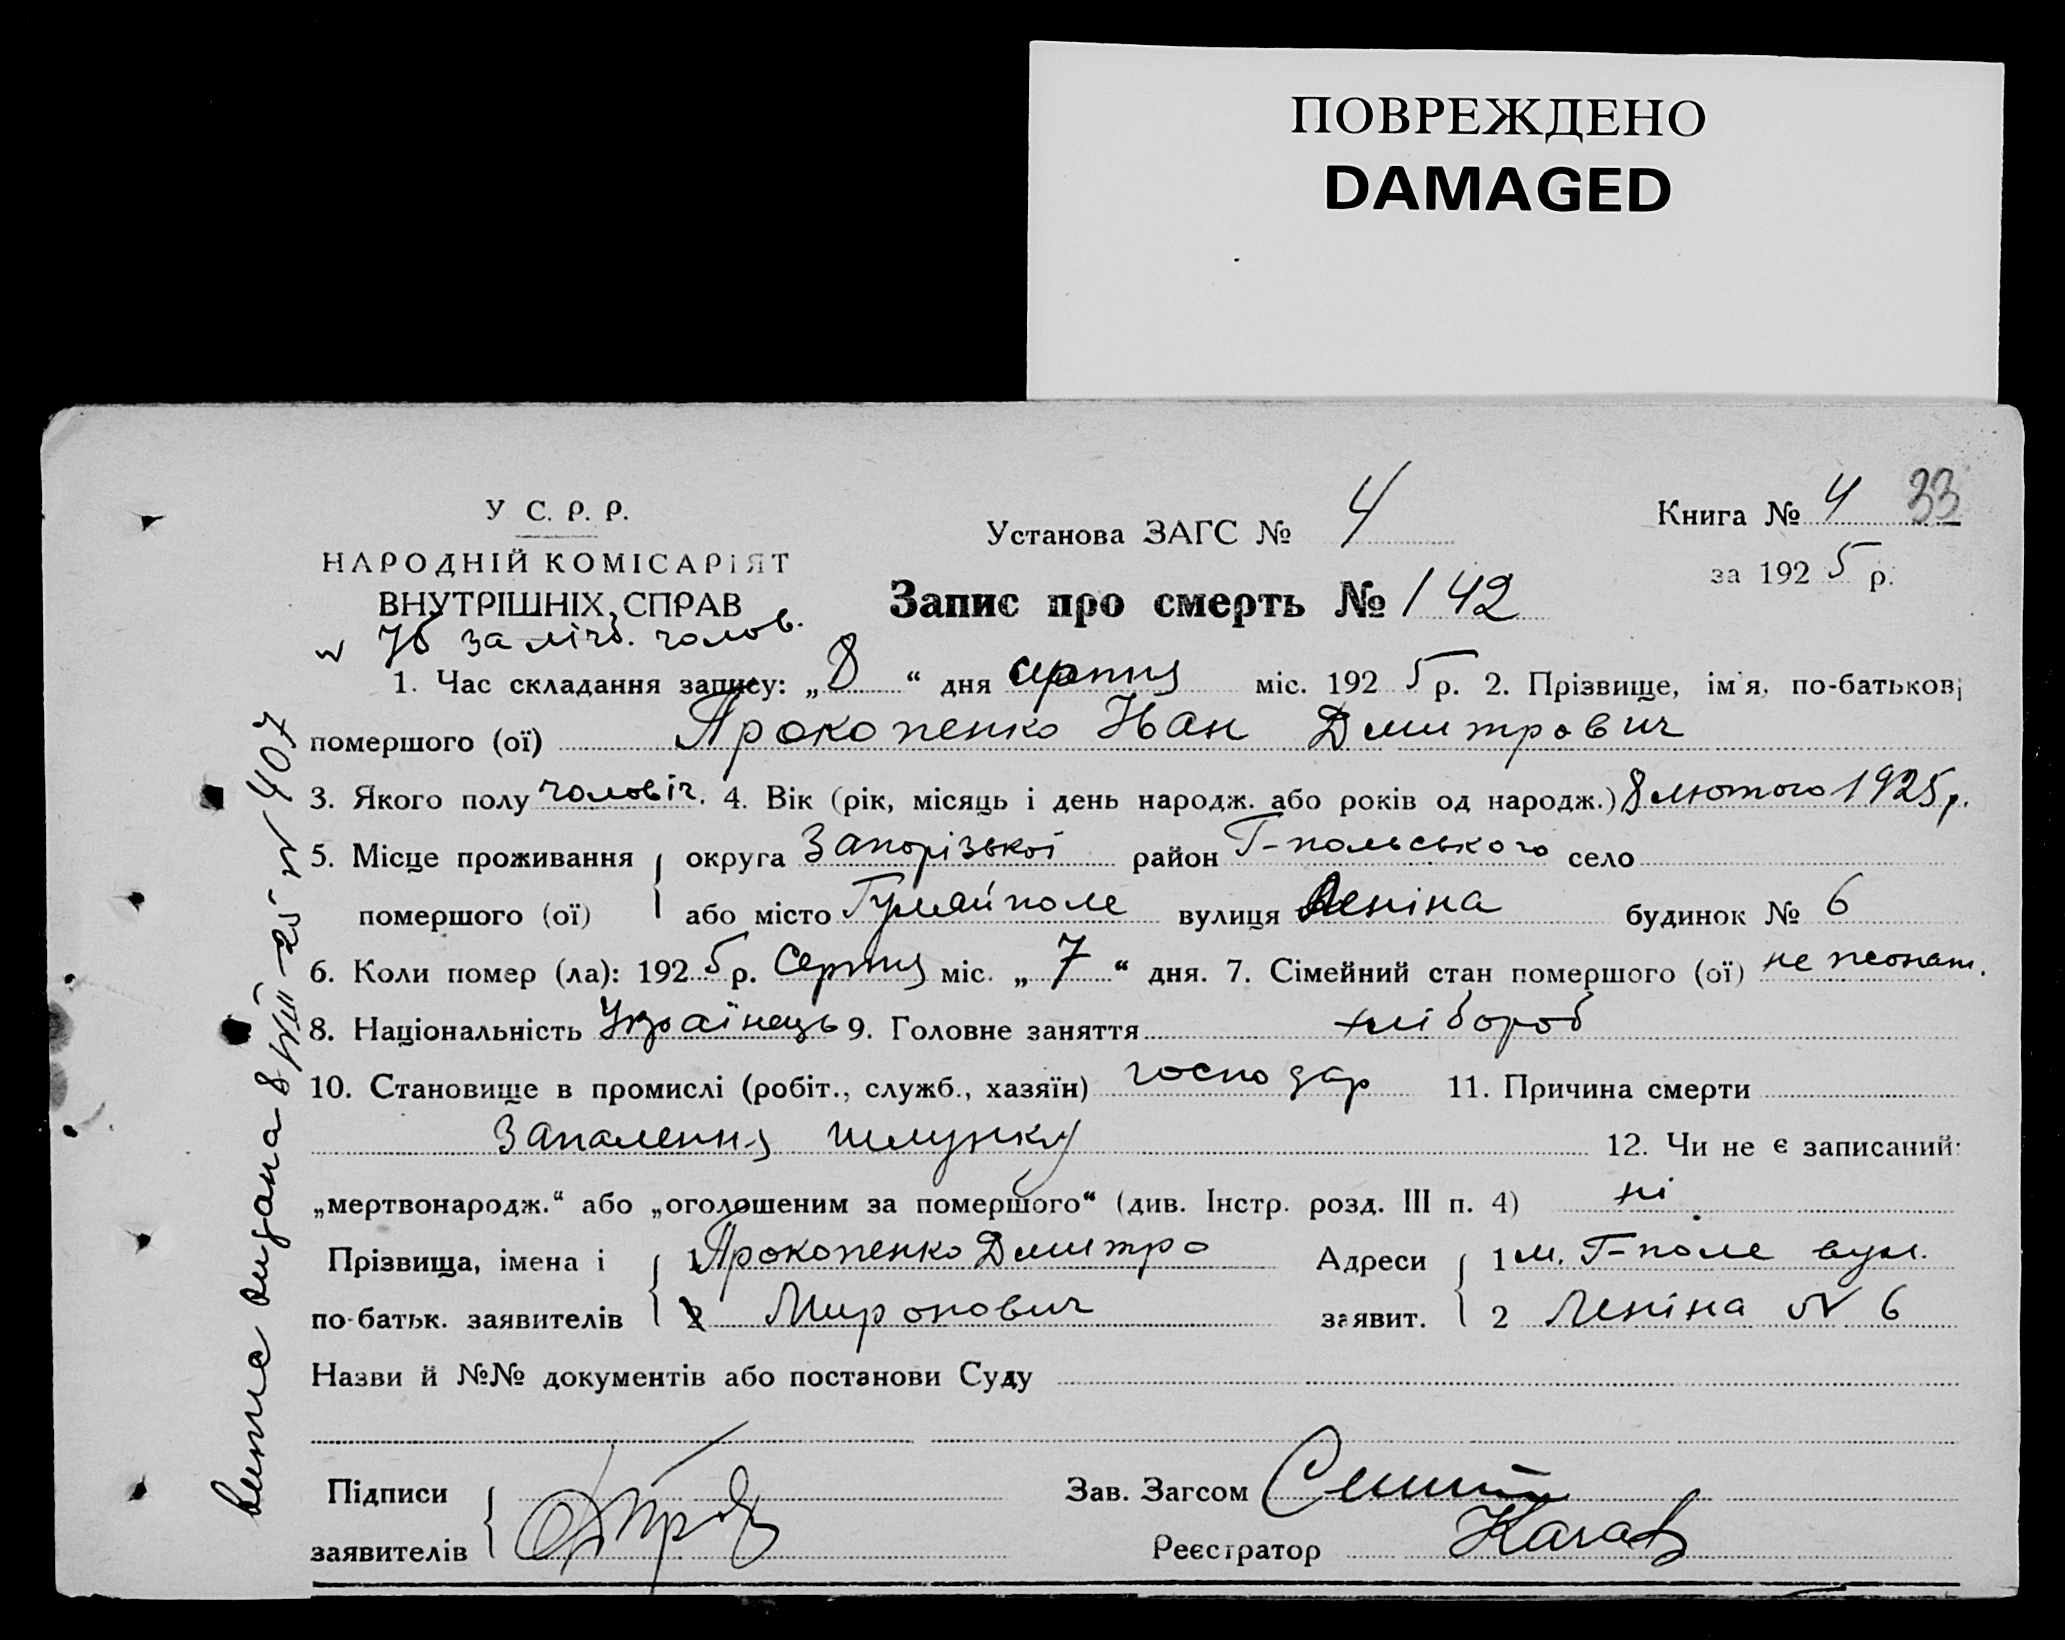 ПОВРЕЖДЕНО
DAMAGED
У С. Р. Р.
НАРОДНІЙ КОМІСАРІЯТ
ВНУТРІШНІХ СПРАВ
Установа ЗАГС № 4
Книга № 4 33
за 1925 р.
Запис про смерть № 142
№ 76 за лічб. чолов.
1. Час складання запису: „8“ дня серпня міс. 1925 р. 2. Прізвище, ім'я, по-батькові
помершого (ої) Прокопенко Іван Дмитрович
3. Якого полу чоловіч. 4. Вік (рік, місяць і день народж. або років од народж.) 8 лютого 1925 р.
5. Місце проживання округа Запорізької район Г-польського село
помершого (ої) або місто Гуляйполе вулиця Леніна будинок № 6
6. Коли помер (ла): 1925 р. Серпня міс. „7“ дня. 7. Сімейний стан помершого (ої) не жонат.
8. Національність Українець 9. Головне заняття хлібороб
10. Становище в промислі (робіт., служб., хазяїн) господар 11. Причина смерти
Запалення шлунку 12. Чи не є записаний:
„мертвонародж.“ або „оголошеним за помершого“ (див. Інстр. розд. III п. 4) ні
Прізвища, імена і 1 Прокопенко Дмитро Адреси 1 м. Г-поле вул.
по-батьк. заявителів 2 Миронович заявит. 2 Леніна № 6
Назви й №№ документів або постанови Суду
Підписи Зав. Загсом
заявителів Реєстратор
витяг видана 8/VIII-25 № 407